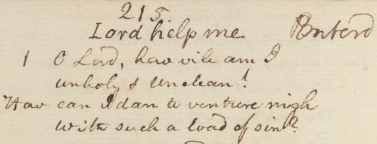 215
Lord help me Enterd
1 O Lord, how vile am I
unholy & unclean!
How can I dare to venture nigh
With such a load of sin?